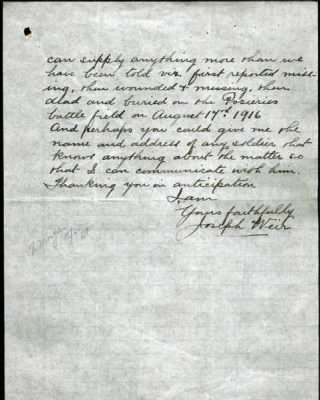 can supply anything more than we
have been told viz, first reported miss-
ing, then wounded & missing, then
dead and buried on the Posieries
battle field on August 17th 1916
And perhaps you could give me the
name and address of any soldier that
knows anything about the matter so
that I can communicate with him.
Thanking you in anticipation
I am
Yours faithfully
Joseph Weir